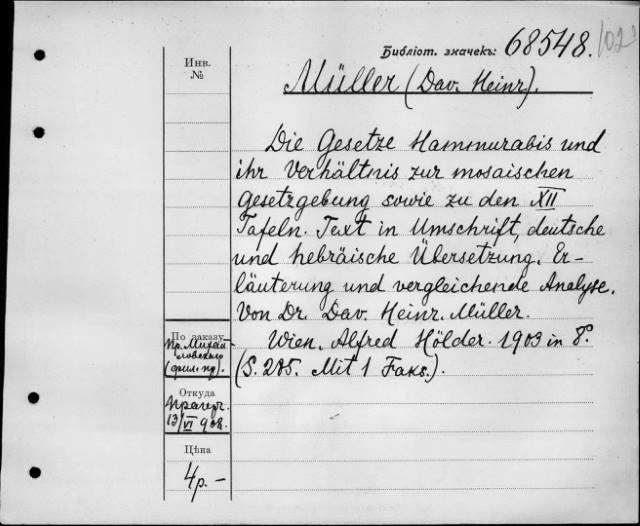 Библіот. значекъ: 68548.
Инв.
№
Müller (Dav. Heinr).
Die Gesetze Hammurabis und
ihr Verhältnis zur mosaischen
Gesetzgebung sowie zu den XII
Tafeln. Text in Umschrift, deutsche
und hebräische Übersetzung. Er-
läuterung und vergleichende Analyse.
Von Dr. Dav. Heinr. Müller.
Wien. Alfred Hölder. 1903 in 8°.
(S. 285. Mit 1 Faks.).
По заказу
Пр.
Откуда
13/VI 908.
Цѣна
4 р. –